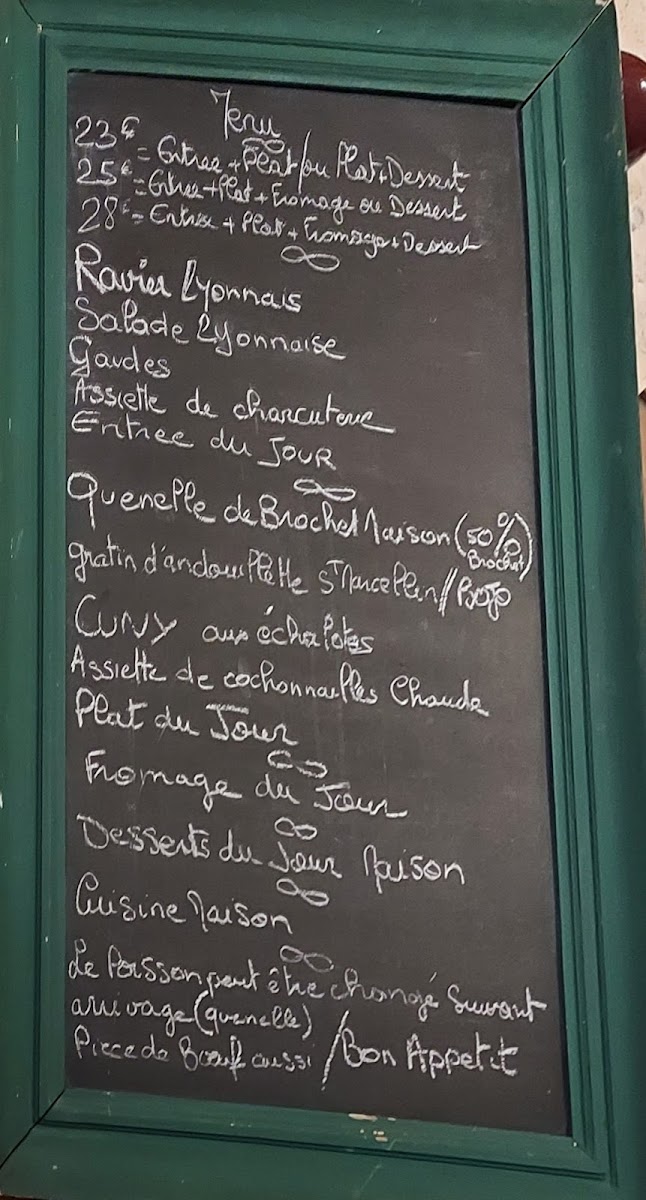 Menu
23€ = Entrée + Plat / ou Plat + Dessert
25€ = Entrée + Plat + Fromage ou Dessert
28€ = Entrée + Plat + Fromage + Dessert
Ravier Lyonnais
Salade Lyonnaise
Gaudes
Assiette de charcuterie
Entree du JOUR
Quenelle de Brochet Maison (50%
Brochet)
gratin d'andouillette St Marcellin //
CUNY aux échalotes
Assiette de cochonnailles Chaude
Plat du Jour
Fromage du Jour
Desserts du Jour Maison
Cuisine Maison
Le Poisson peut être changé Suivant
arrivage (quenelle)
Piece de Bœuf aussi / Bon Appetit